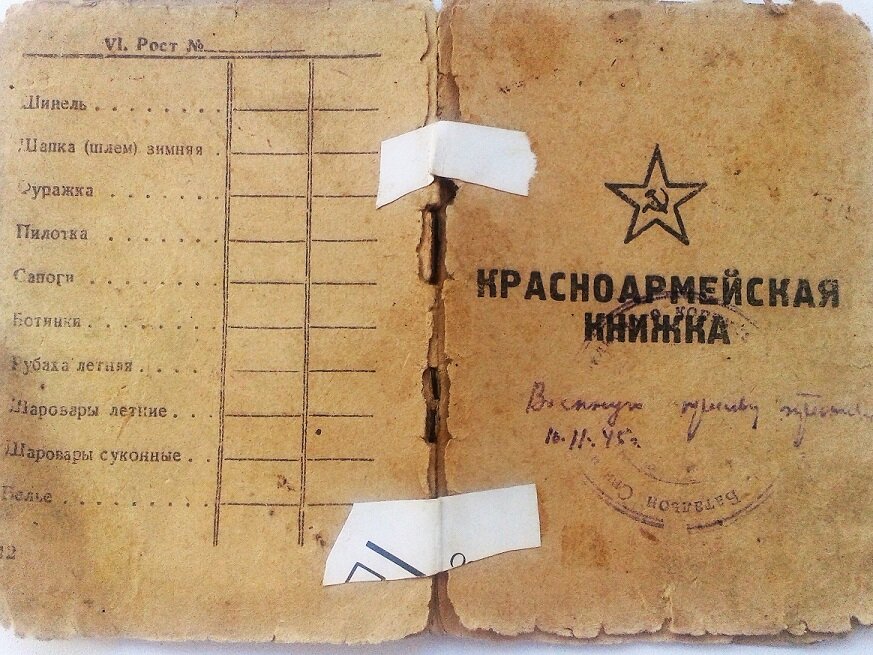 VI. Рост №
Шинель
Шапка (шлем) зимняя
Фуражка
Пилотка
Сапоги
Ботинки
Рубаха летняя
Шаровары летние
Шаровары суконные
Белье
12
КРАСНОАРМЕЙСКАЯ
КНИЖКА
Военную
16.11.45г.
Батальон